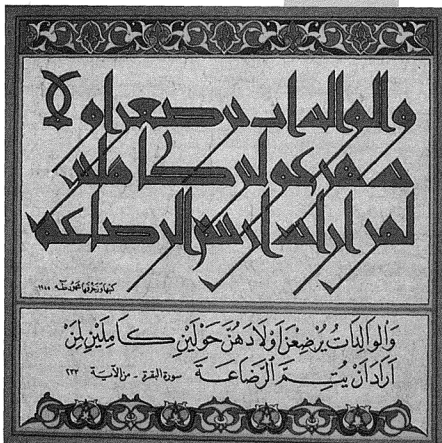 والوالدات يرضعن اولا
دهن حولين كاملين
لمن اراد ان يتم الرضاعة
كتبها وزخرفها محمود طه
وَالوَالِدَاتُ يُرْضِعْنَ أَوْلَادَهُنَّ حَوْلَيْنِ كَامِلَيْنِ لِمَنْ
أَرَادَ أَنْ يُتِمَّ الرَّضَاعَةَ سورة البقرة - من الآية ٢٣٣